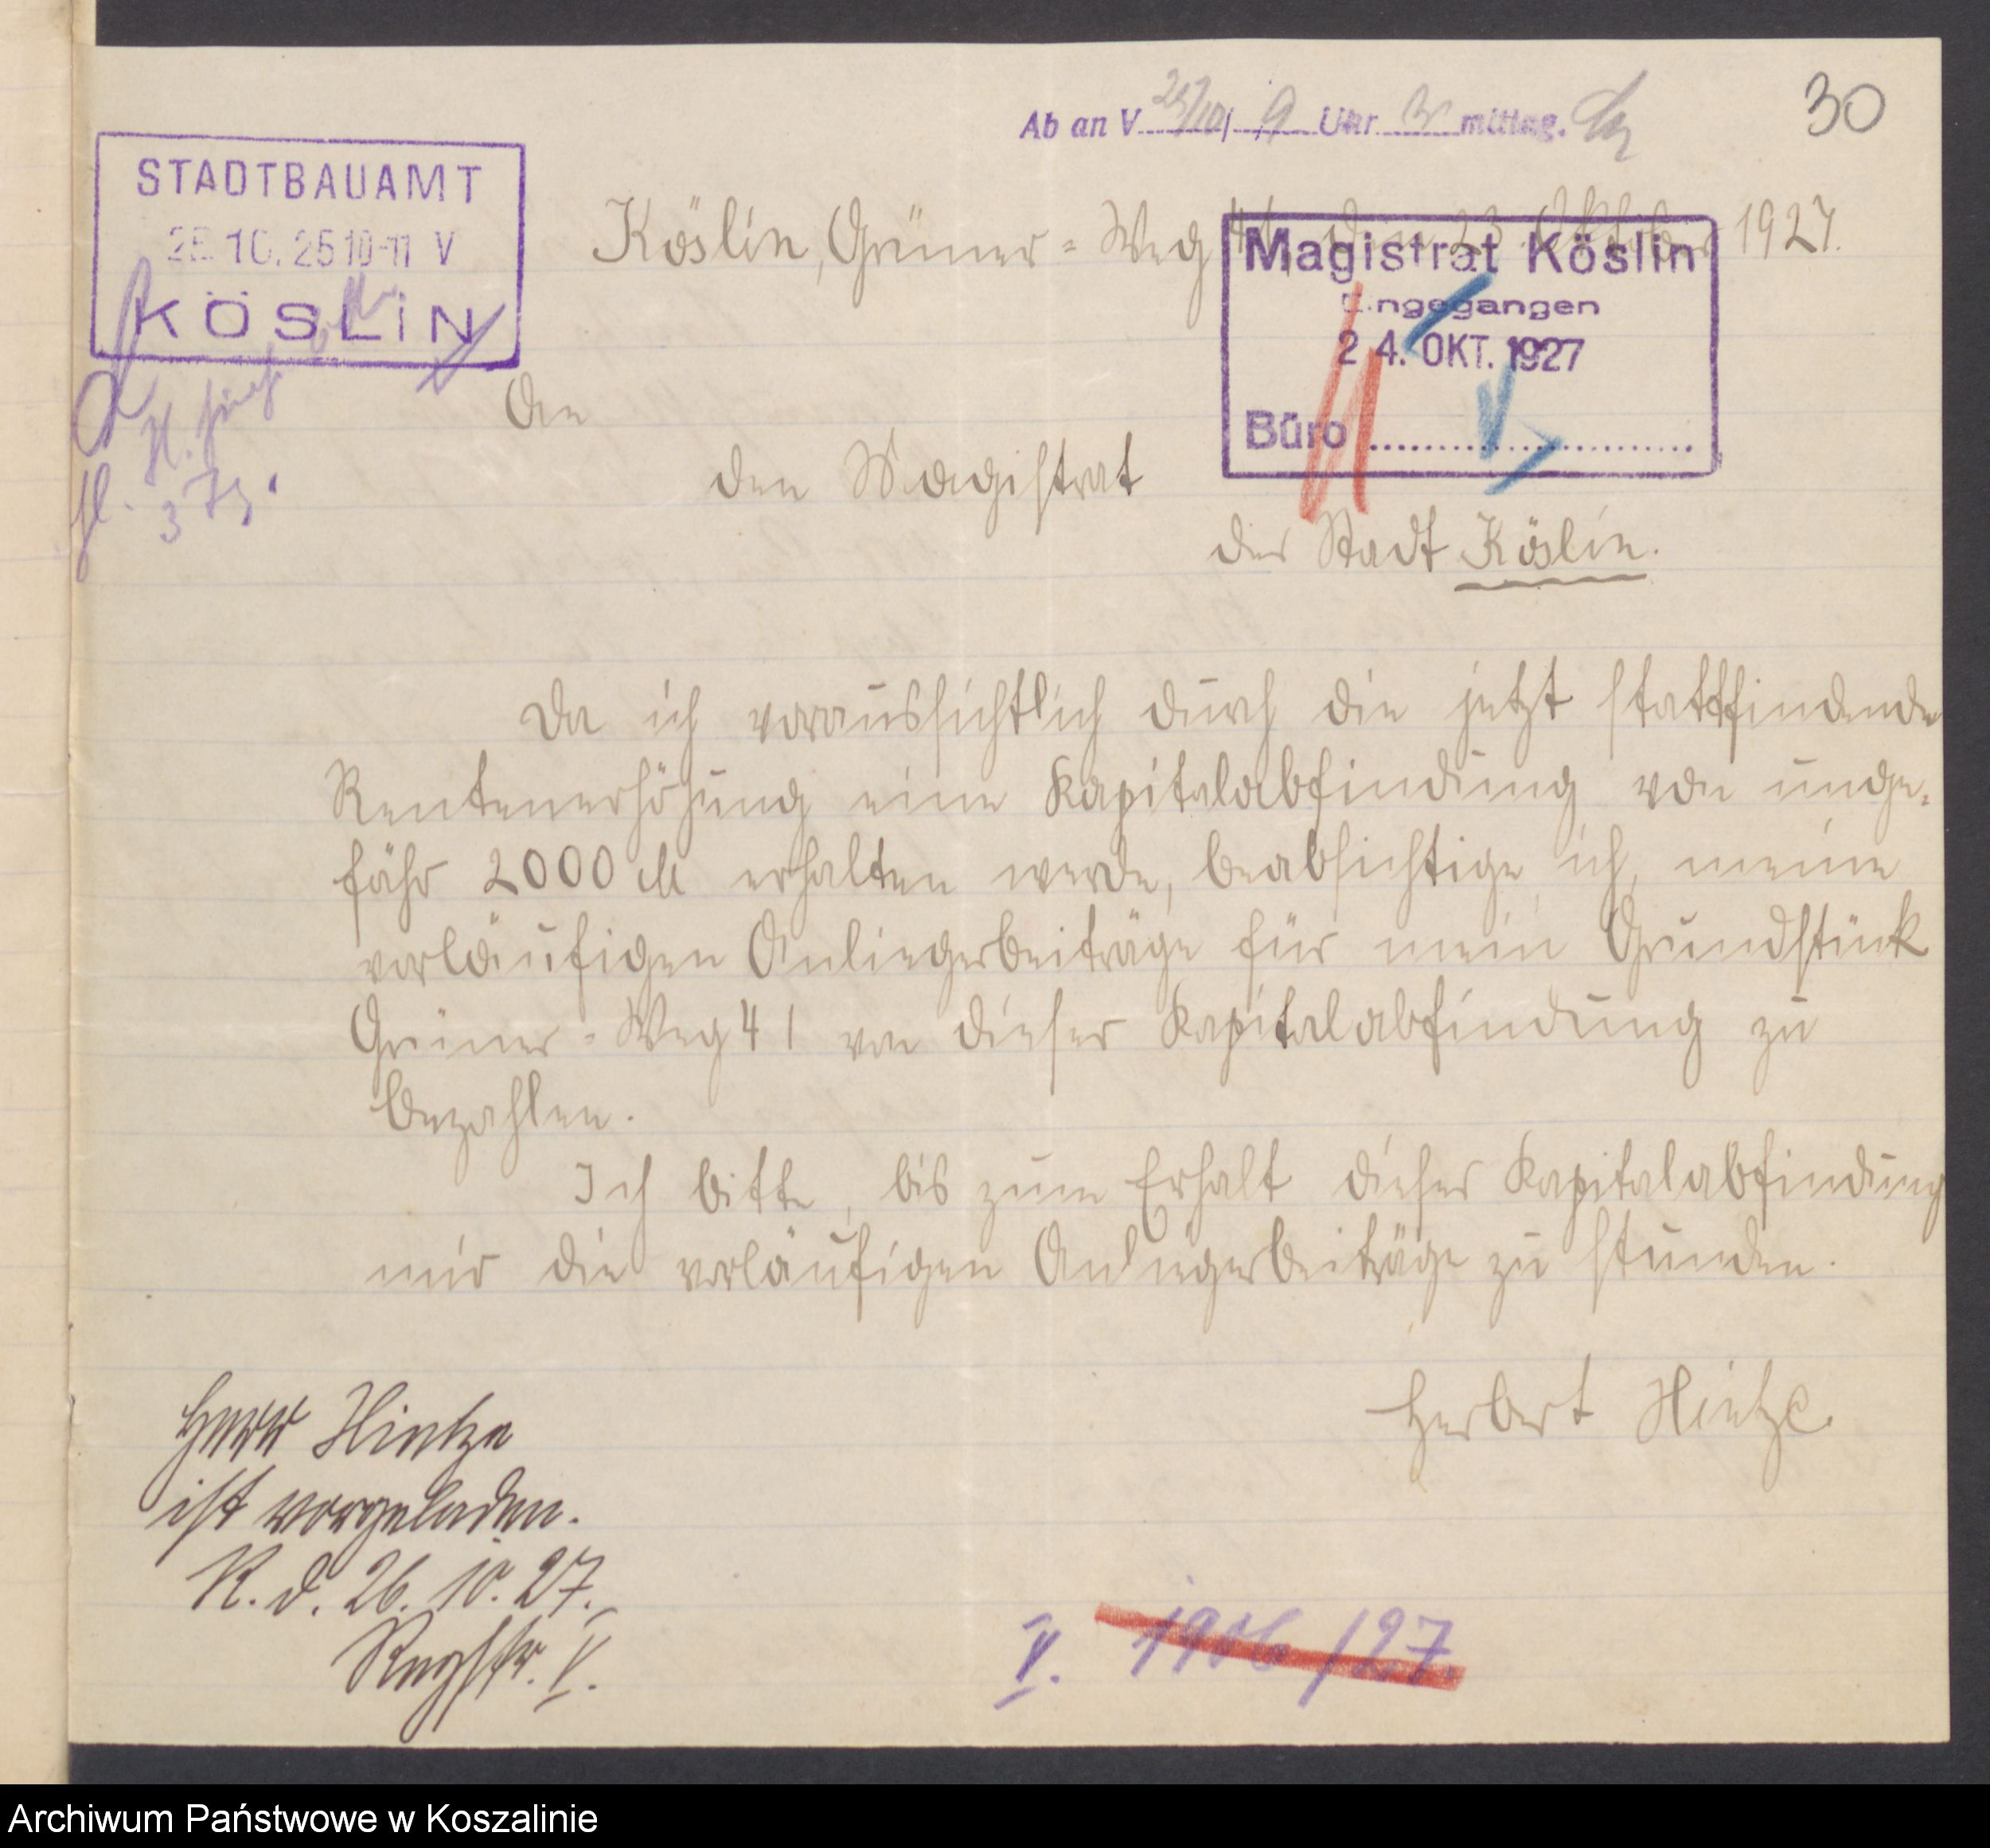 30
Ab an V 25/10 9 Uhr mittag.
STADTBAUAMT
25.10.25 10-11 V
KÖSLIN
Köslin, Grüner-Weg 41, den 23. Oktober 1927.
Magistrat Köslin
Eingegangen
24. OKT. 1927
Büro
An
den Magistrat
der Stadt Köslin.
Da ich voraussichtlich durch die jetzt stattfindende
Rentenerhöhung eine Kapitalabfindung von unge-
fähr 2000 M erhalten werde, beabsichtige ich, meine
vorläufigen Anliegerbeiträge für mein Grundstück
Grüner-Weg 41 von dieser Kapitalabfindung zu
bezahlen.
Ich bitte, bis zum Erhalt dieser Kapitalabfindung
mir die vorläufigen Anliegerbeiträge zu stunden.
Herbert Hintze.
Herr Hintze
ist vorgeladen.
K. d. 26.10.27.
Regstr. V.
V. /27.
Archiwum Państwowe w Koszalinie